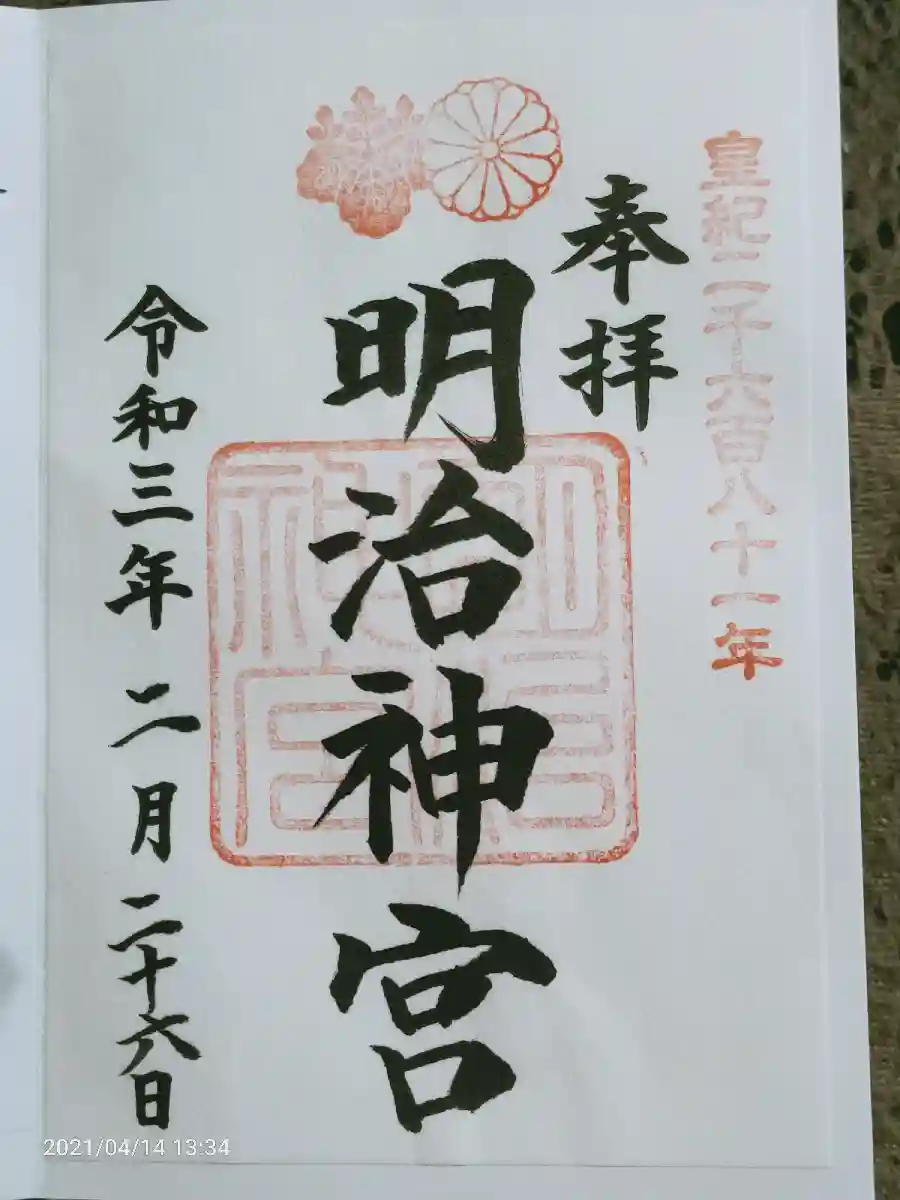 皇紀二千六百八十一年
奉拝
明治神宮
明治神宮
令和三年 二月 二十六日
2021/04/14 13:34